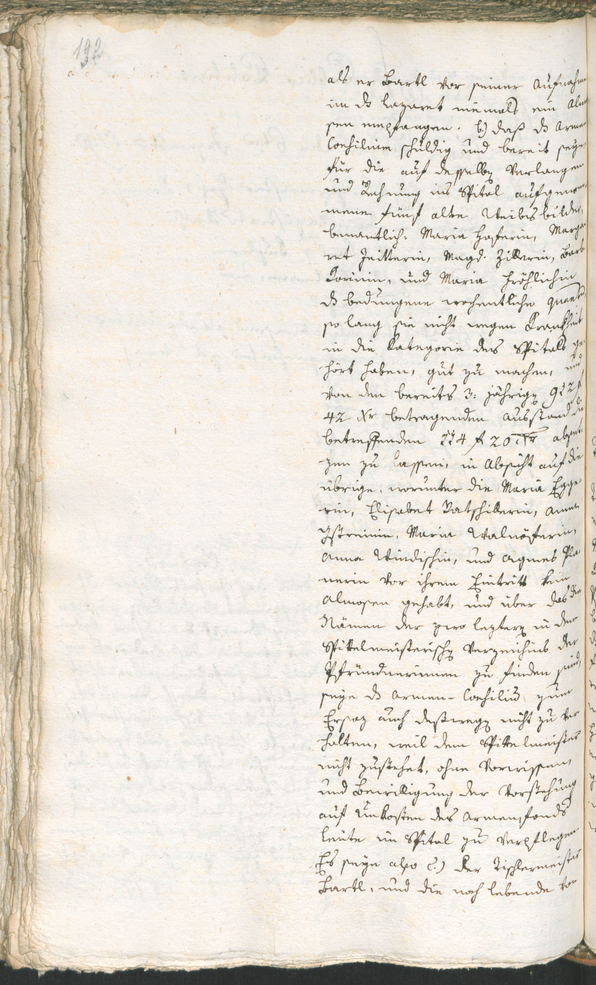 192
als er Bartl vor seiner Aufnahm
im d Lazaret niemals ein Alm
sen empfangen. b) daß d Armen
Consilium schuldig und bereit seye
für die auf desselby Verlangen
und Rechnung ins Spital aufgenom
mene fünf alte Weibsbilder,
benantlich: Maria Hoferin, Marga
ret Zeitterin, Magd. Zillerin, Barb
Corinin, und Maria Fröhlichin
d bedungene wochentliche quant
so lang sie nicht wegen Krankheit
in die Kategorie des Spitals ge
hört haben, gut zu machen, und
von den bereits 3. jährigy
42 Xr betragenden Ausstand
betreffenden 114 f 20 Xr abset
zen zu lassen, in Absicht auf die
übrige, worunter die Maria Egge
rin, Elisabet Tatschillerin, Anna
Maria Walnöferin,
Anna Windischin, und Agnes Pla
nerin vor ihrem Eintritt kein
Almosen gehabt, und über das die
Nämen der zwo leztery in den
Spitelmeisterischy Verzeichnis der
Pfründnerinnen zu finden sind,
seye d Armen-Consiliu zum
Ersaz auch deßwegy nicht zu ver
halten, weil dem Spitelmeister
nicht zustehet, ohne Vorwissen,
und Bewilligung der Vorstehung
auf Unkosten des Armenfonds
leute im Spital zu verpflegen
Es seye also c) der Tischlermeister
Bartl, und die noch lebende von